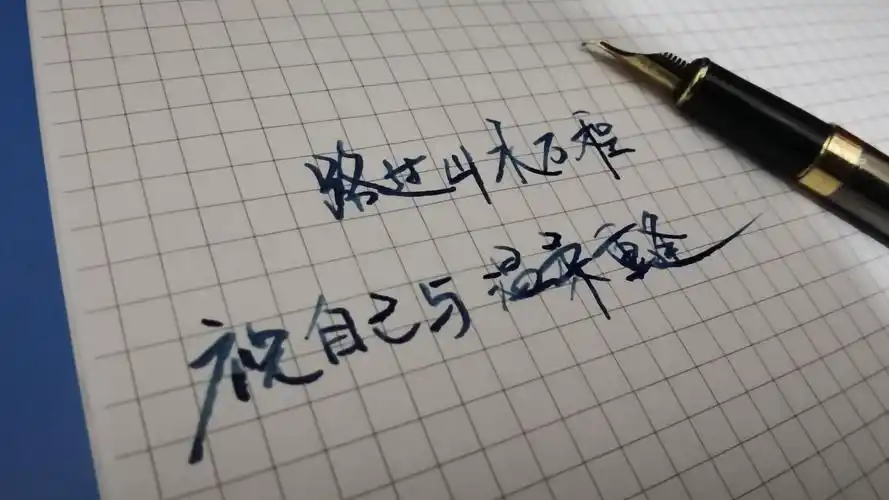 路过山水万程
祝自己与温柔重逢